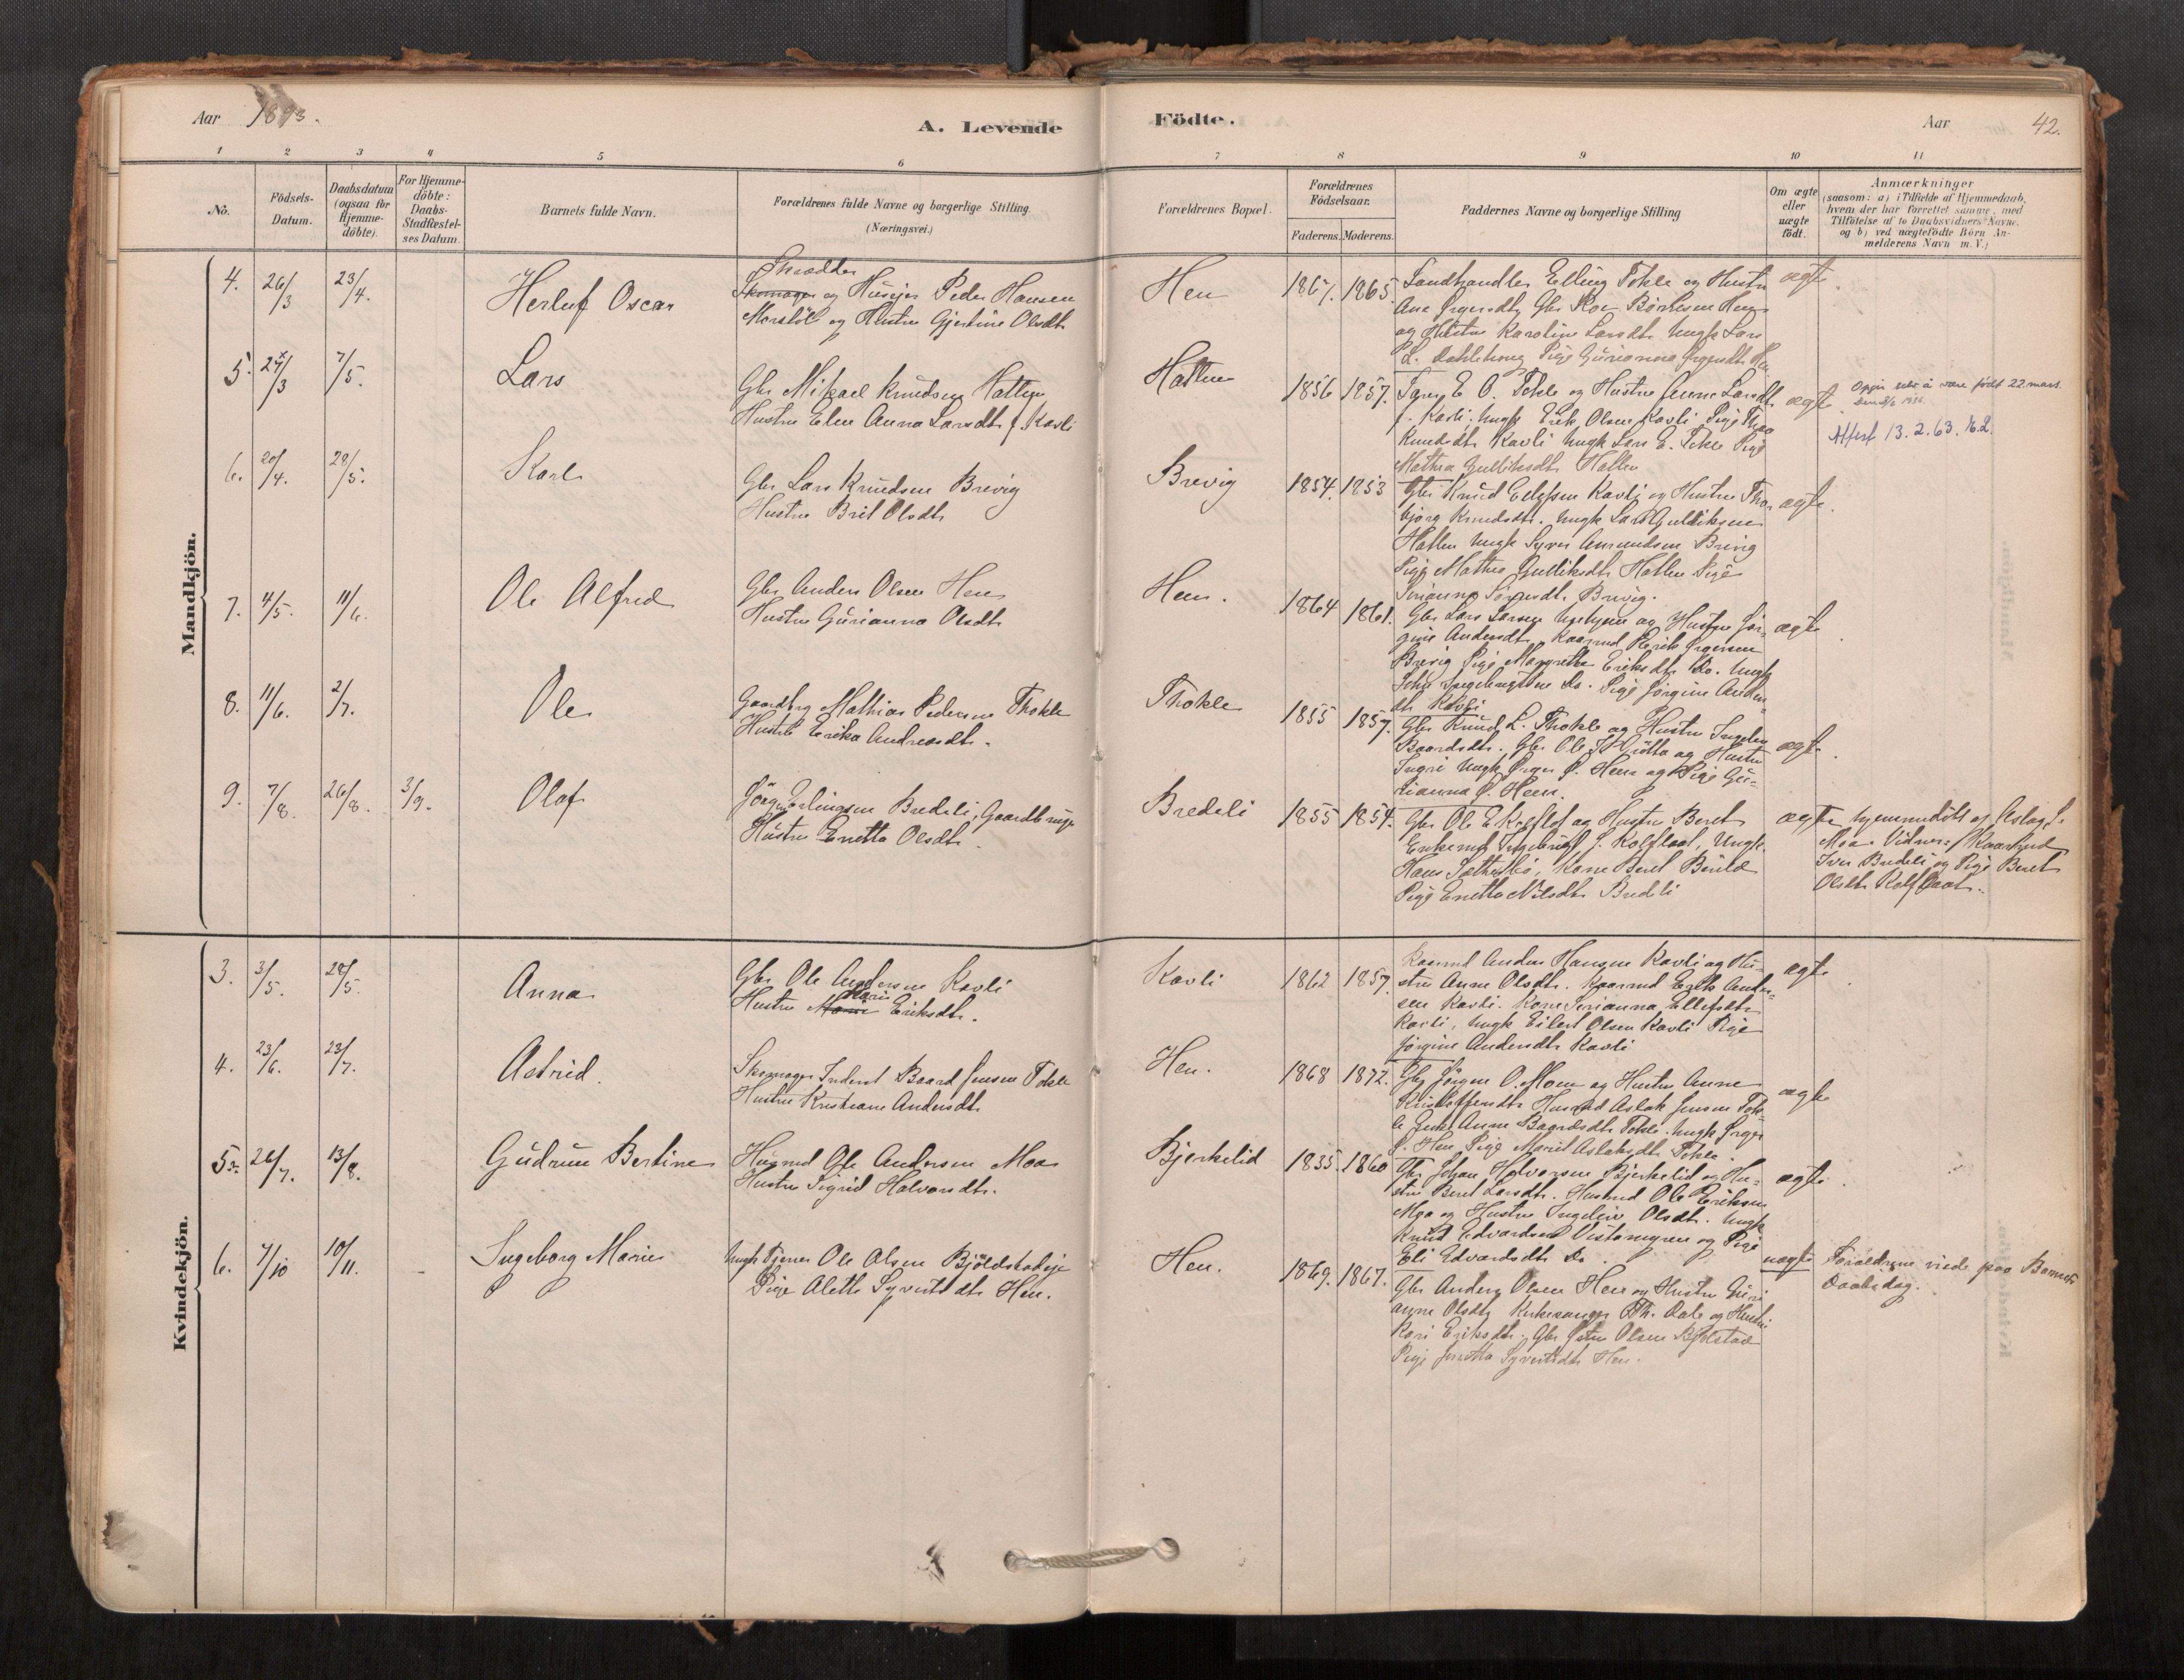 Aar 1893.
A. Levende
Födte.
Aar
42.
1 2 3 4 5 6 7 8 9 10 11
No.
Födsels-
Datum.
Daabsdatum
(ogsaa for
Hjemme-
döbte).
For Hjemme-
döbte:
Daabs-
Stadfæstel-
ses Datum.
Barnets fulde Navn.
Forældrenes fulde Navne og borgerlige Stilling.
(Næringsvei.)
Forældrenes Bopæl.
Forældrenes
Födselsaar.
Faderens. Moderens.
Faddernes Navne og borgerlige Stilling
Om ægte
eller
uægte
födt.
Anmærkninger
(saasom: a) i Tilfælde af Hjemmedaab,
hvem der har forrettet samme, med
Tilföielse af to Daabsvidners Navne,
og b) ved uægtefödte Börn An-
melderens Navn m. V.)
Mandkjön.
4. 26/3 23/4. Herluf Oscar
Skrædder
Skomager og Husejer Peder Hansen
Morstöl og Hustru Gjertine Olsdtr
Hen 1867. 1865.
Landhandler Elling Tokle og Hustru
og Hustru Karoline Larsdtr Ungk Lars
ægte.
5. 24/3 7/5. Lars
Gbr Mikael Knudsen Hatten
Hustru Elen Anna Larsdtr f. Kavli
Hatten 1856 1857.
E. O. Tokle og Hustru Anne Larsdtr
f. Kavli, Ungk Erik Olsen Kavli, Pige Thea
Knudsdtr Kavli Ungk Lars E. Tokle Pige
Mathea Gulliksdtr Hatten
ægte.
Oppgir selv å være født 22. mars.
Attest 13.2.63.
6. 20/4. 28/5. Karl
Gbr Lars Knudsen Brevig
Hustru Brit Olsdtr
Brevig 1854. 1853
Gbr Knud Kavli og Hustru Thor-
bjørg Knudsdtr. Ungk Lars Gulliksen
Hatten Ungk Syver Amundsen Brevig
Pige Mathea Gulliksdtr Hatten Pige
Brevig.
ægte.
7. 4/5. 11/6. Ole Alfred
Gbr Anders Olsen Hen
Hustru Gurianna Olsdtr
Hen. 1864 1861.
Gbr Lars Larsen og Hustru Jør-
gine Andersdtr, Kaarmd Erik
Brevig Pige Magrethe Eriksdtr Do. Ungk
Do. Pige Jørgine Anders-
dtr Kavli
ægte.
8. 11/6. 2/7. Ole
Gaardbrg Mathias Pedersen Thokle
Hustru Erika Andreasdtr.
Thokle 1855 1857.
Gbr Knud L. Thokle og Hustru
Baardsdtr. Gbr Ole og Hustru
Ingri Ungk Ø. Hen og Pige Gu-
rianna Ø. Hen.
ægte.
9. 7/8. 26/8. 3/9. Olaf
Jörgen Erlingsen Bredeli, Gaardbruger
Hustru Enetta Olsdtr.
Bredeli 1855 1854.
Gbr Ole E. Kolflot og Hustru Beret
Enkemd J. Kolflaat, Ungk.
Hans Kone Beret
Pige Enetta Nilsdtr Bredeli
ægte
hjemmedöbt af Aslag
Moa. Vidner: Kaarmd
Iver Bredeli og Pige Beret
Olsdtr Kolflaat.
Kvindekjön.
3. 3/5. 28/5. Anna
Gbr Ole Andersen Kavli
Kari
Hustru Eriksdtr.
Kavli 1862 1857.
Kaarmd Anders Hansen Kavli og Hu-
stru Anne Olsdtr. Kaarmd Erik Ander-
sen Kavli. Kone Serianna Ellefsdtr
Kavli, Ungk Eilert Olsen Kavli Pige
Jørgine Andersdtr Kavli
ægte.
4. 23/6. 23/7. Astrid.
Skomager Inderst Baard Jensen Tokle
Hustru Kristiane Andersdtr
Hen. 1868 1872.
Gbr Jörgen O. Moen og Hustru Anne
Kristoffersdtr Husmd Aslak Jensen Tok-
le Enke Anne Baardsdtr Tokle. Ungk
Ø. Hen Pige Marit Aslaksdtr Tokle.
ægte
5. 26/7. 13/8. Gudrun Bertine
Husmd Ole Andersen Moa
Hustru Sigrid Halvorsdtr.
Bjerkelid 1835. 1860
Gbr Johan Halvorsen Bjerkelid og Hu-
stru Beret Larsdtr. Husmd Ole Eriksen
Moa og Hustru Olsdtr. Ungk
Knut Edvardsen Vistamyren og Pige
Eli Edvardsdtr Do.
ægte.
6. 7/10 10/11. Ingeborg Marie
Ungk Tjener Ole Olsen
Pige Alette Syvertsdtr Hen.
Hen. 1869. 1867.
Gbr Anders Olsen Hen og Hustru Guri-
anne Olsdtr Kirkesanger Th. Dale og Hustru
Kari Eriksdtr. Gbr Peter Olsen
Pige Syvertsdtr Hen.
uægte
Forældrene viede paa Barnets
Daabsdag.